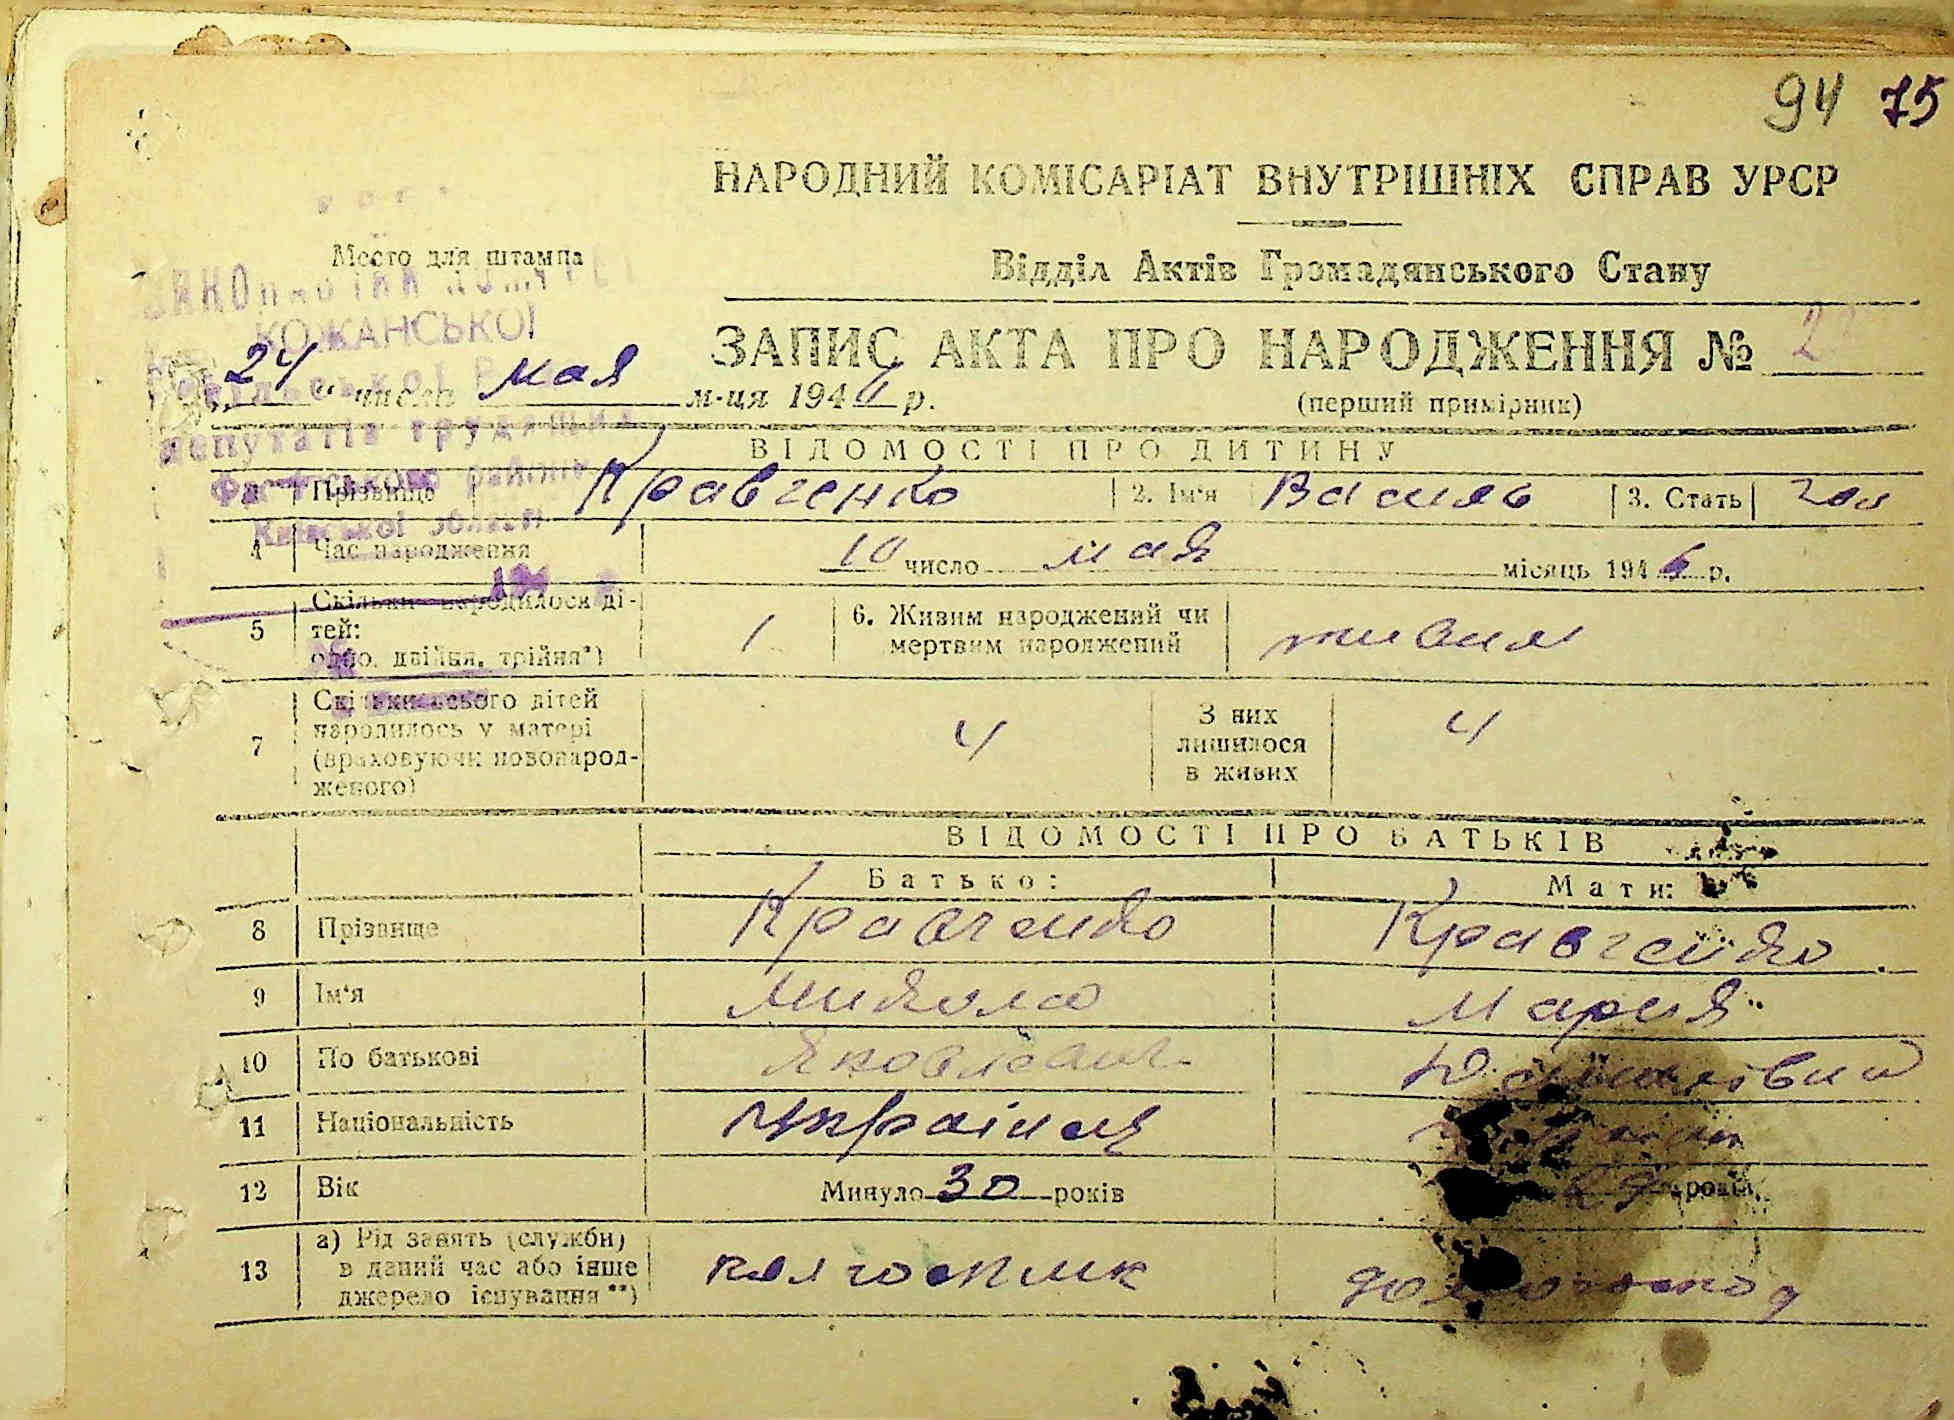 94 75
НАРОДНИЙ КОМІСАРІАТ ВНУТРІШНІХ СПРАВ УРСР
Место для штампа
Відділ Актів Громадянського Стану
КОЖАНСЬКОЇ
ЗАПИС АКТА ПРО НАРОДЖЕННЯ № 2
„24“ числа мая м-ця 194 р.
(перший примірник)
депутатів трудящих
ВІДОМОСТІ ПРО ДИТИНУ
Фастівського району
Прізвище Кравченко 2. Ім'я Василь 3. Стать чол
Київської області
4 Час народження 10 число мая місяць 194 р.
5 Скільки народилося ді-
тей:
одно, двійня, трійня*) 1 6. Живим народжений чи
мертвим народжений живим
7 Скільки всього дітей
народилось у матері
(враховуючи новонарод-
женого) 4 З них
лишилося
в живих 4
ВІДОМОСТІ ПРО БАТЬКІВ
Батько: Мати:
8 Прізвище Кравченко Кравченко
9 Ім'я Микола Мария
10 По батькові Яковлевич
11 Національність
12 Вік Минуло 30 років років
13 а) Рід занять (служби)
в даний час або інше
джерело існування**) колгоспник